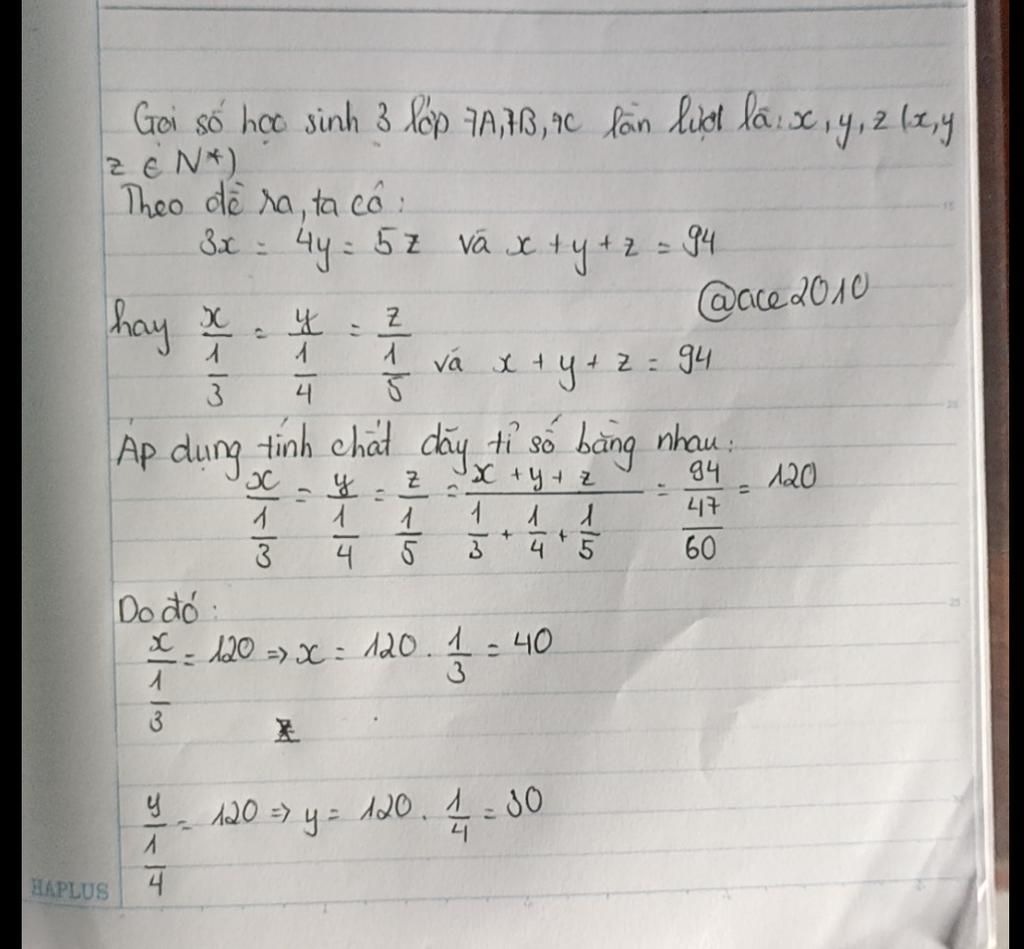 Gọi số học sinh 3 lớp 7A, 7B, 7C lần lượt là: x, y, z (x, y
z ∈ N*)
Theo đề ra, ta có:
3x = 4y = 5z và x + y + z = 94
@ace2010
hay x/(1/3) = y/(1/4) = z/(1/5) và x + y + z = 94
Áp dụng tính chất dãy tỉ số bằng nhau:
x/(1/3) = y/(1/4) = z/(1/5) = (x + y + z)/(1/3 + 1/4 + 1/5) = 94/(47/60) = 120
Do đó:
x/(1/3) = 120 => x = 120 . 1/3 = 40
y/(1/4) = 120 => y = 120 . 1/4 = 30
HAPLUS